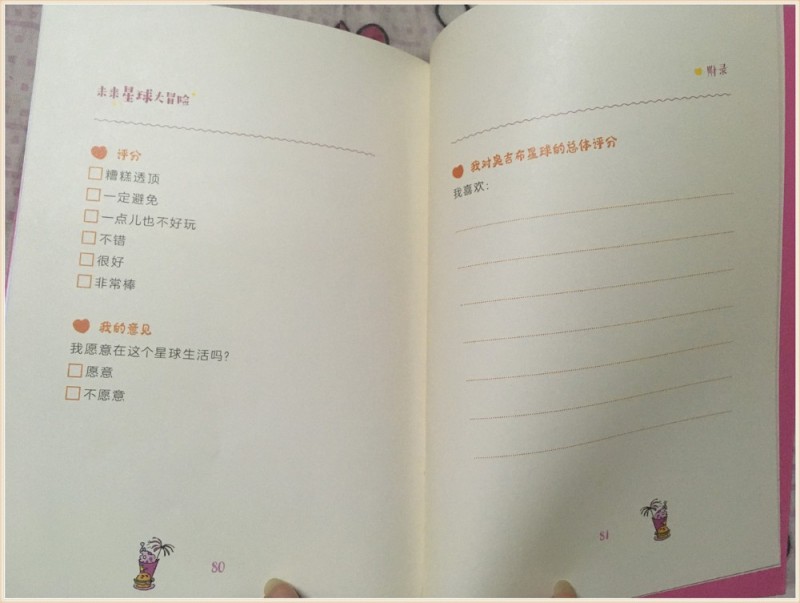 未来星球大冒险
评分
糟糕透顶
一定避免
一点儿也不好玩
不错
很好
非常棒
我的意见
我愿意在这个星球生活吗?
愿意
不愿意
80
附录
我对奥吉布星球的总体评分
我喜欢:
81